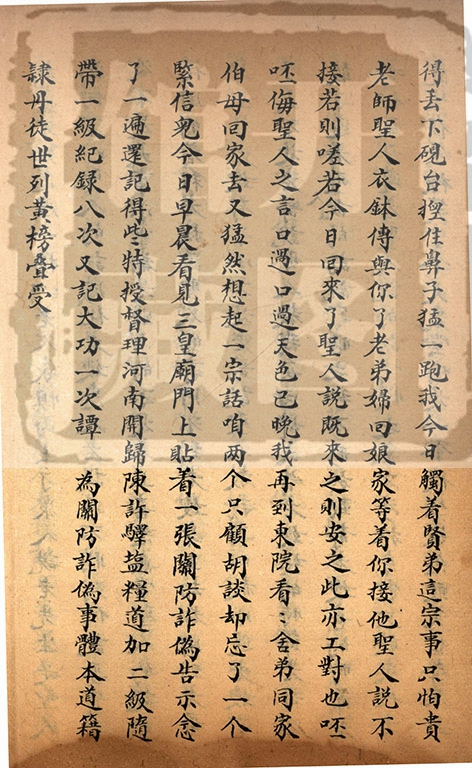 得丢下硯台揑住鼻子猛一跑我今日觸着賢弟這宗事只怕貴
老師聖人衣鉢傳與你了老弟婦回娘家等着你接他聖人說不
接若則嗟若今日回來了聖人說既來之則安之此亦工對也呸
呸侮聖人之言口過口過天色已晚我再到東院看〻舍弟同家
伯母回家去又猛然想起一宗話咱两个只顧胡談却忘了一个
緊信皃今日早晨看見三皇廟門上貼着一張關防詐偽告示念
了一遍還記得些〻特授督理河南開歸陳許驛盐糧道加二級隨
帶一級紀録八次又記大功一次譚 為關防詐偽事體本道籍
隷丹徒世列黄榜叠受